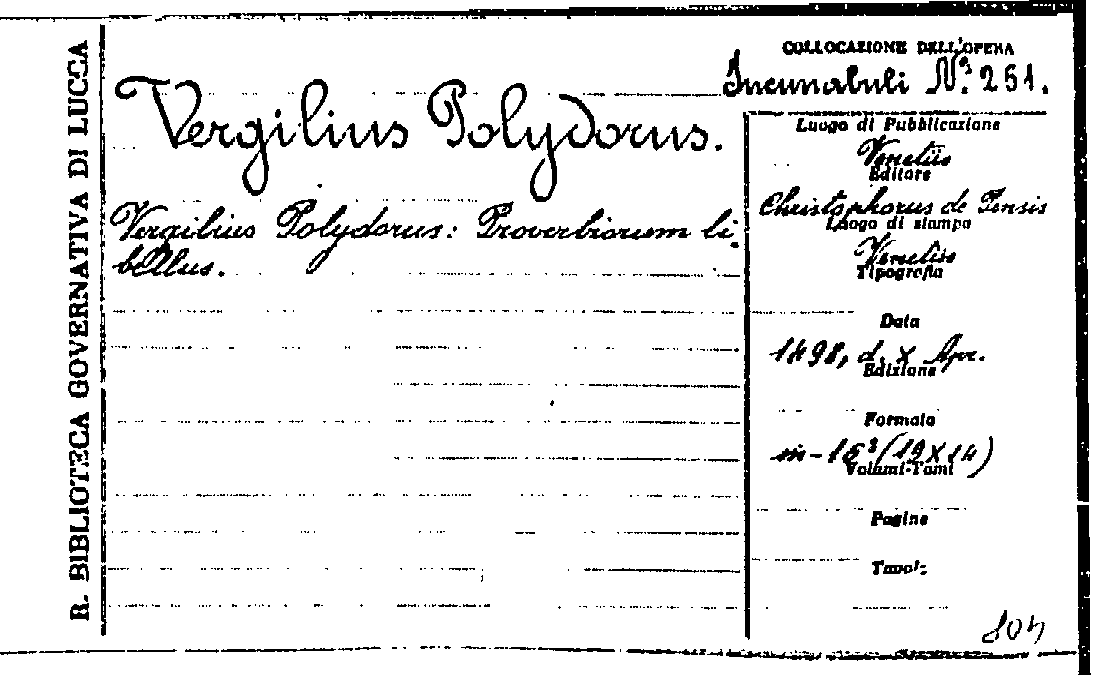 R. BIBLIOTECA GOVERNATIVA DI LUCCA
COLLOCAZIONE DELL'OPERA
Incunabuli Nº. 251.
Vergilius Polydorus.
Vergilius Polydorus: Proverbiorum li-
bellus.
Luogo di Pubblicazione
Venetiis
Editore
Christophorus de Pensis
Luogo di stampa
Venetiis
Tipografia
Data
1498, d. X Apr.
Edizione
Formato
in-16º (19X14)
Volumi-Tomi
Pagine
Tavole